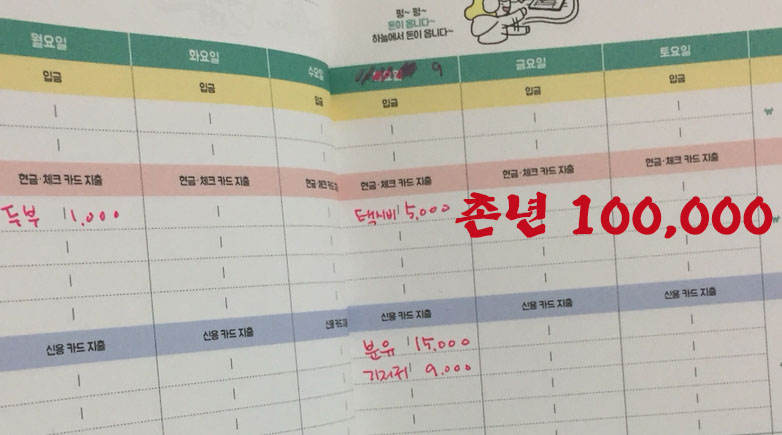 펑~ 펑~
돈이 옵니다~
하늘에서 돈이 옵니다~
월요일 화요일 수요일 9 금요일 토요일
입금 입금 입금 입금 입금 입금
현금·체크 카드 지출 현금·체크 카드 지출 현금·체크 카드 지 현금·체크 카드 지출 현금·체크 카드 지출 현금·체크 카드 지출
두부 1,000 택시비 5,000 존년 100,000
신용 카드 지출 신용 카드 지출 신용 카드 지 신용 카드 지출 신용 카드 지출 신용 카드 지출
분유 15,000
기저귀 9,000